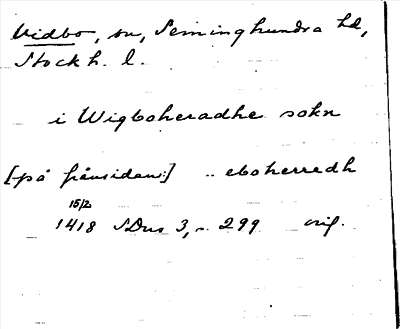 Vidbo, sn, Seminghundra hd,
Stockh. l.
i Wigboheradhe sokn
[på frånsidan:] .. eboherredh
15/2
1418 SDns 3, s. 299 orig.